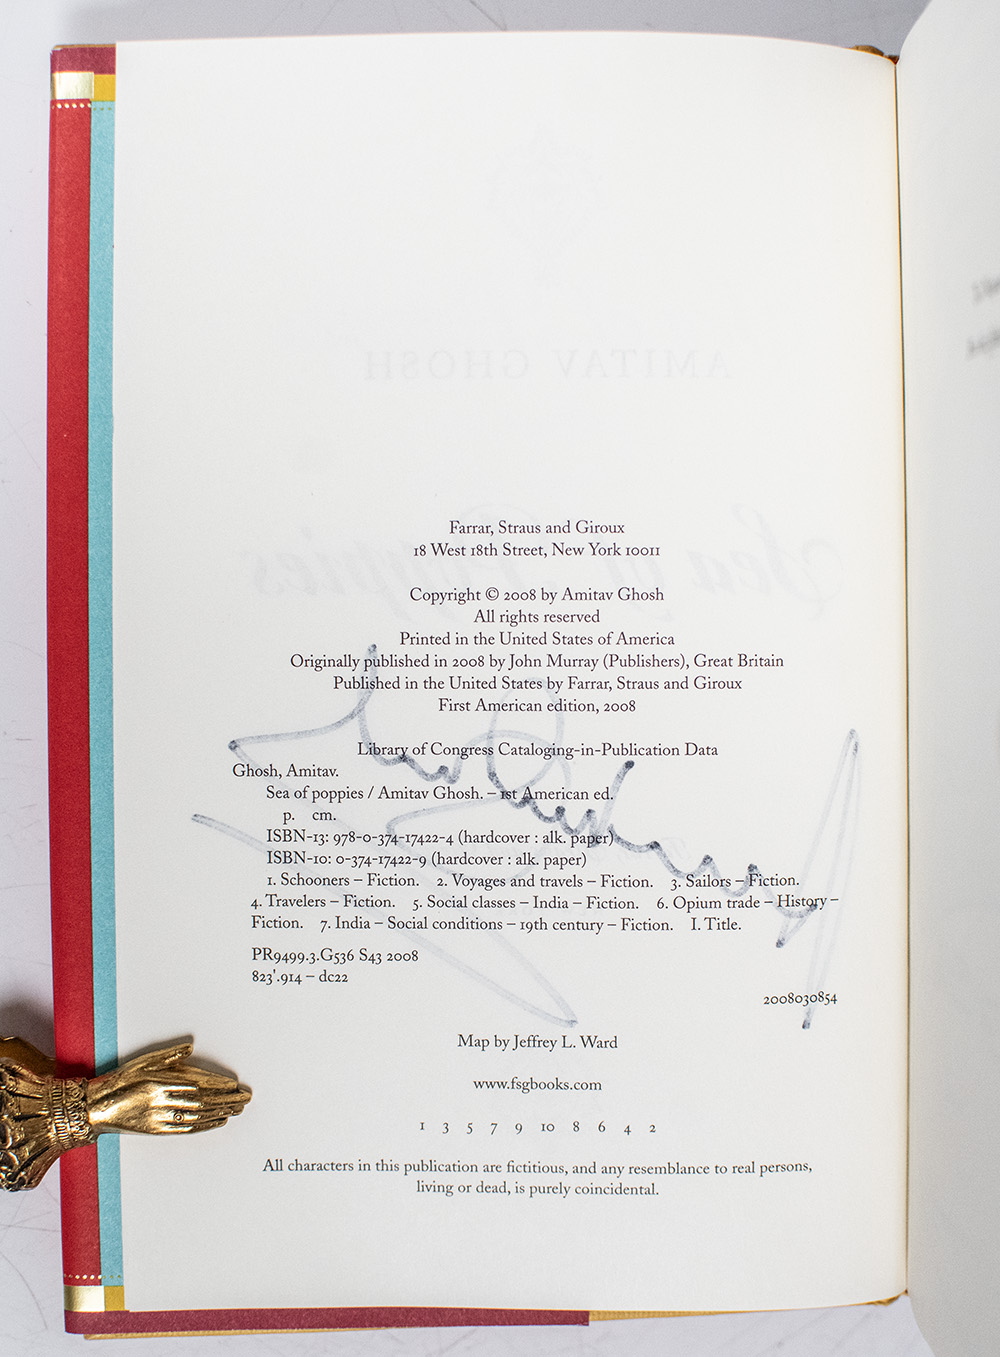 AMITAV GHOSH
Sea of Poppies
Farrar, Straus and Giroux
18 West 18th Street, New York 10011
Copyright © 2008 by Amitav Ghosh
All rights reserved
Printed in the United States of America
Originally published in 2008 by John Murray (Publishers), Great Britain
Published in the United States by Farrar, Straus and Giroux
First American edition, 2008
Library of Congress Cataloging-in-Publication Data
Ghosh, Amitav.
Sea of poppies / Amitav Ghosh. – 1st American ed.
p. cm.
ISBN-13: 978-0-374-17422-4 (hardcover : alk. paper)
ISBN-10: 0-374-17422-9 (hardcover : alk. paper)
1. Schooners – Fiction. 2. Voyages and travels – Fiction. 3. Sailors – Fiction.
4. Travelers – Fiction. 5. Social classes – India – Fiction. 6. Opium trade – History –
Fiction. 7. India – Social conditions – 19th century – Fiction. I. Title.
PR9499.3.G536 S43 2008
823'.914 – dc22
2008030854
Map by Jeffrey L. Ward
www.fsgbooks.com
1 3 5 7 9 10 8 6 4 2
All characters in this publication are fictitious, and any resemblance to real persons,
living or dead, is purely coincidental.